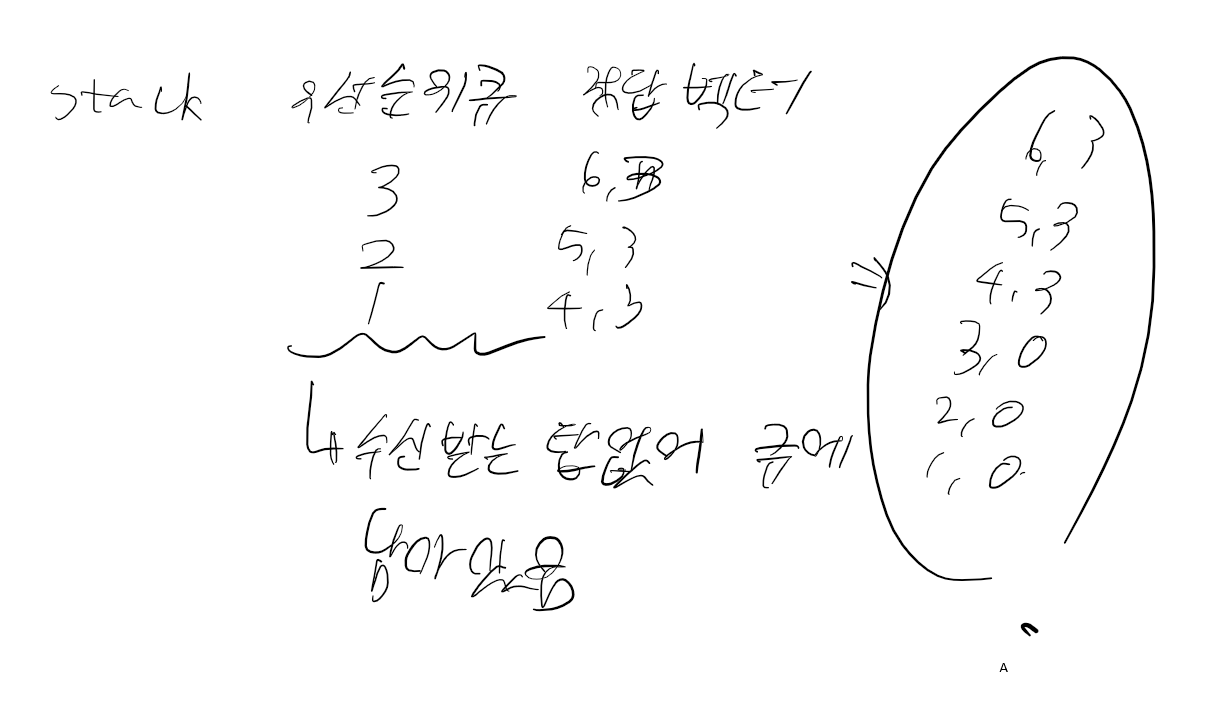 stack 우선순위큐 정답 벡터
3 6,
2 5,3
1 4,3
6,3
5,3
4,3
3,0
2,0
1,0
↳ 수신 받는 탑없어 큐에
남아있음
A